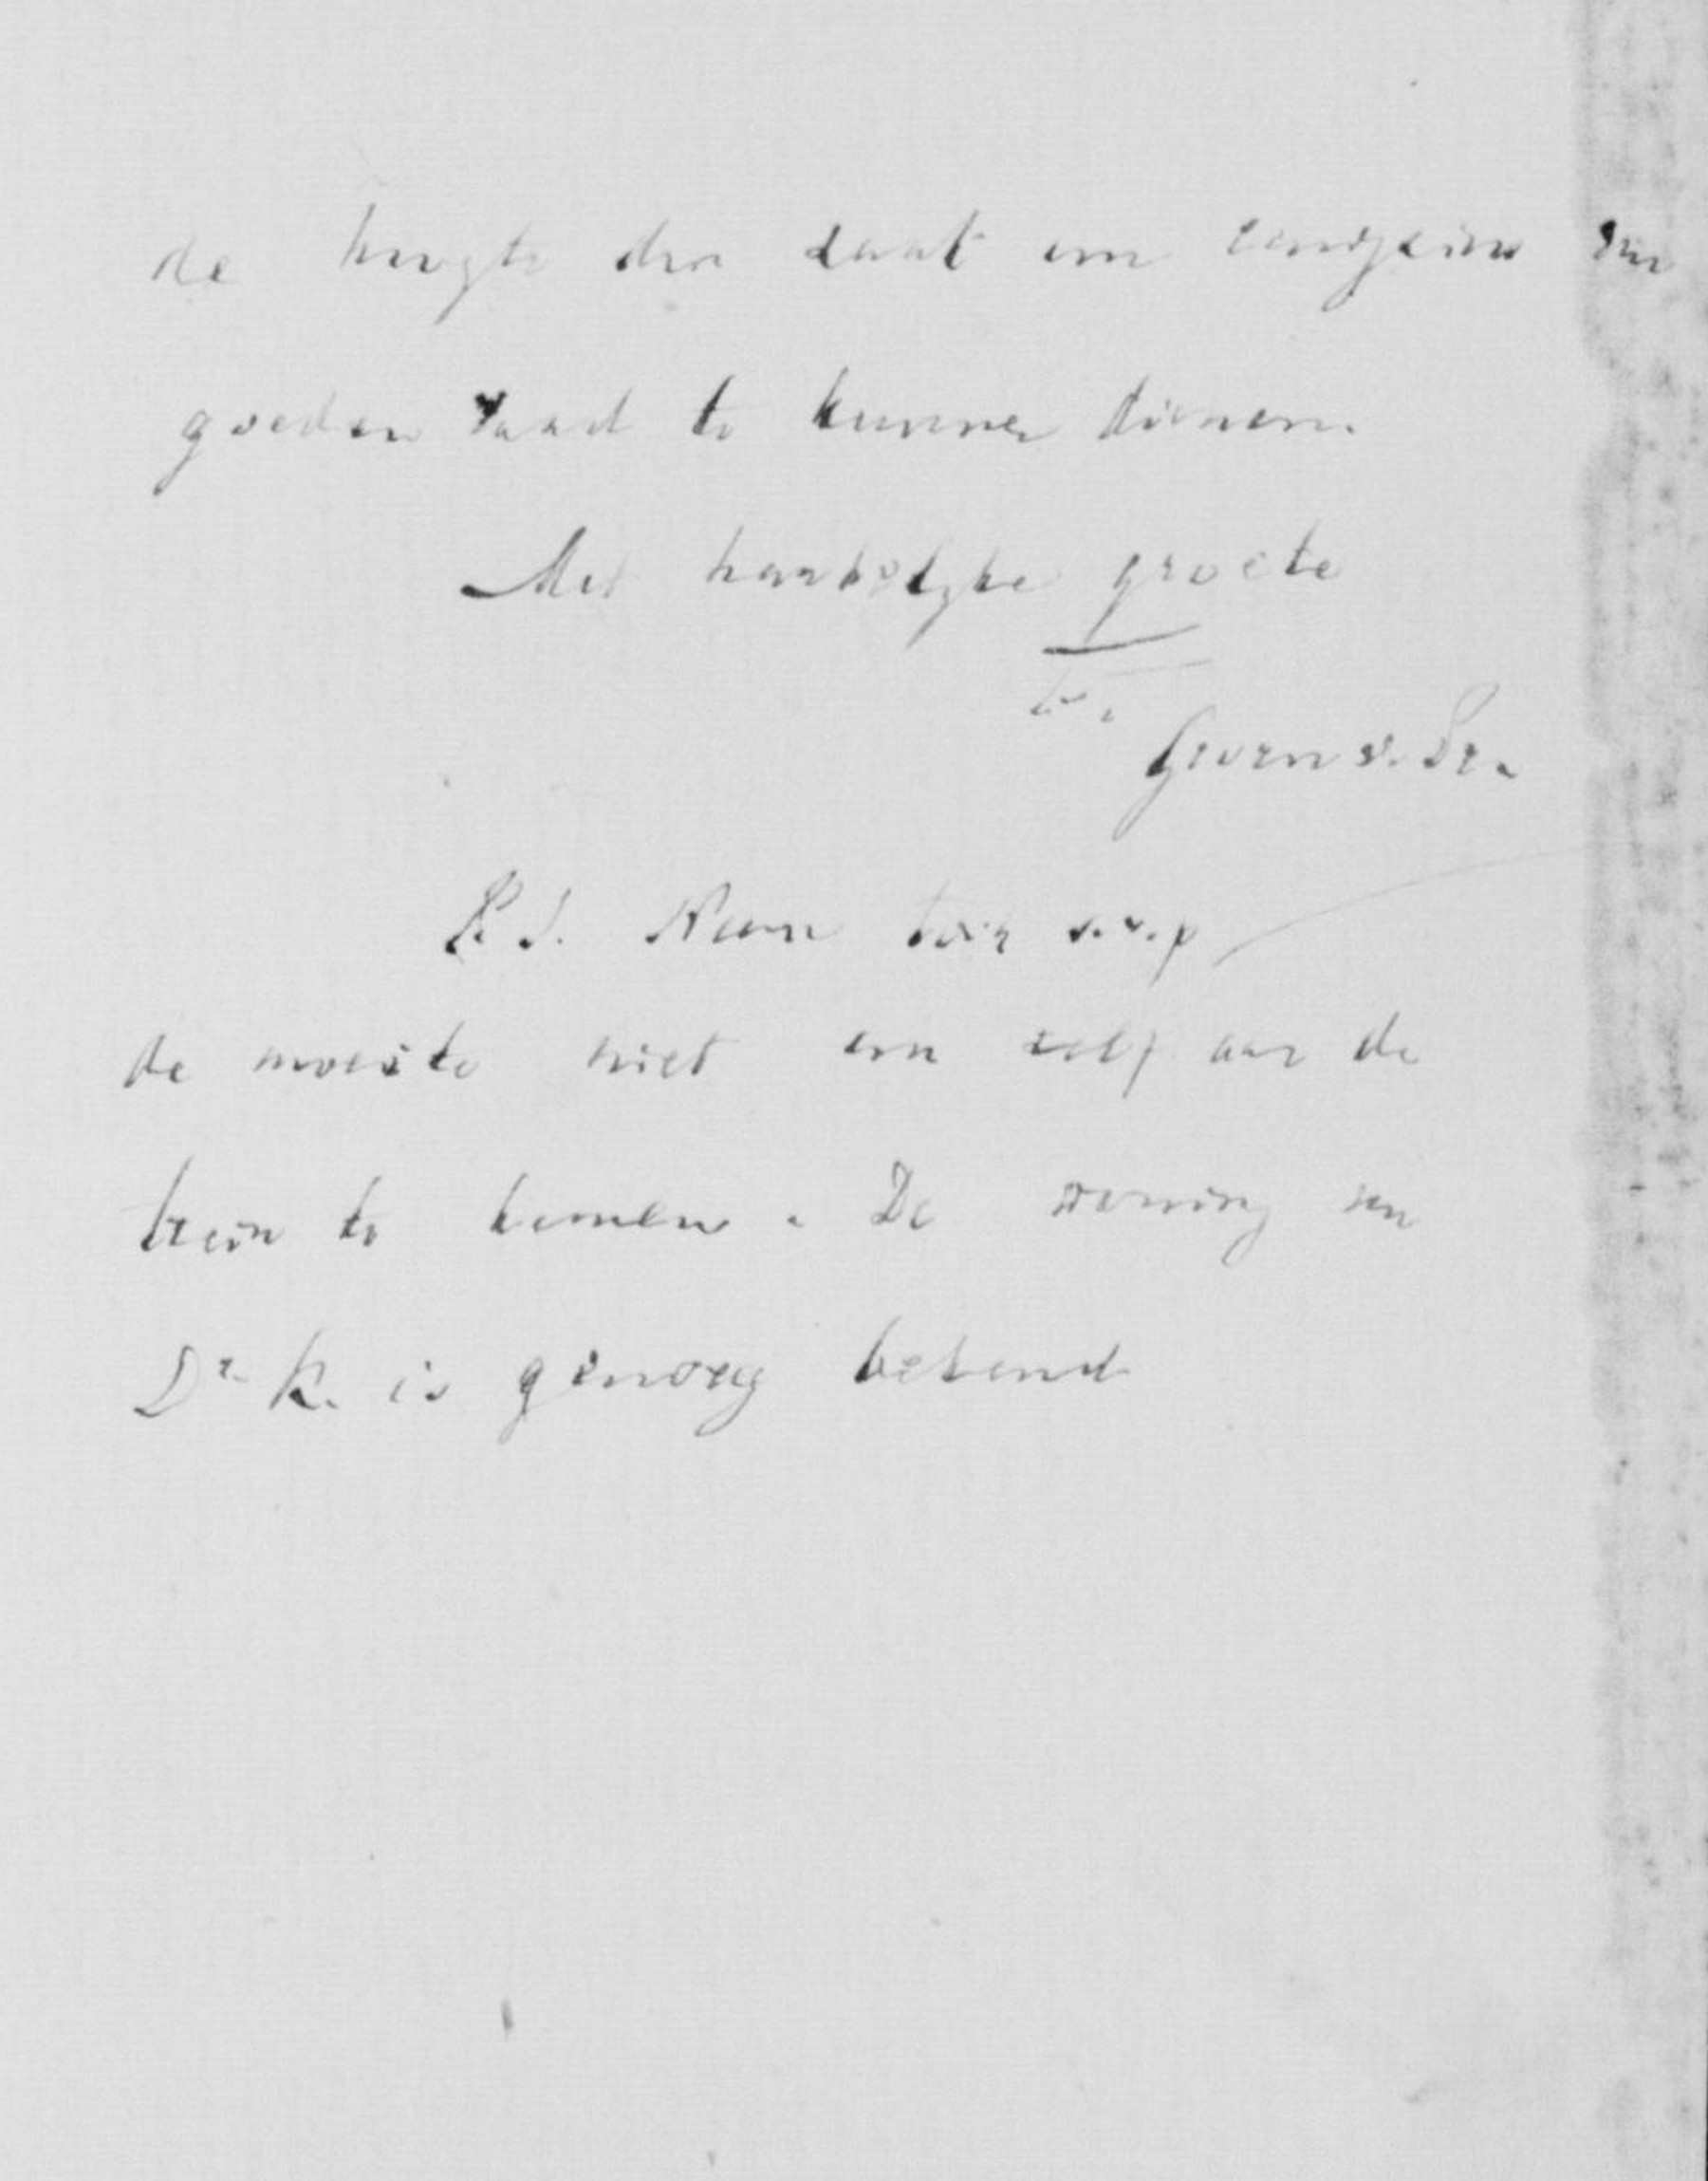 de hoogte der zaak om eenigzins van
goeden raad te kunnen dienen.
Met hartelyke groete
Groen v. Pr.
P.S. Neem toch s.v.p
de moeite niet om zelf aan de
trein te komen. De woning van
Dr K. is genoeg bekend